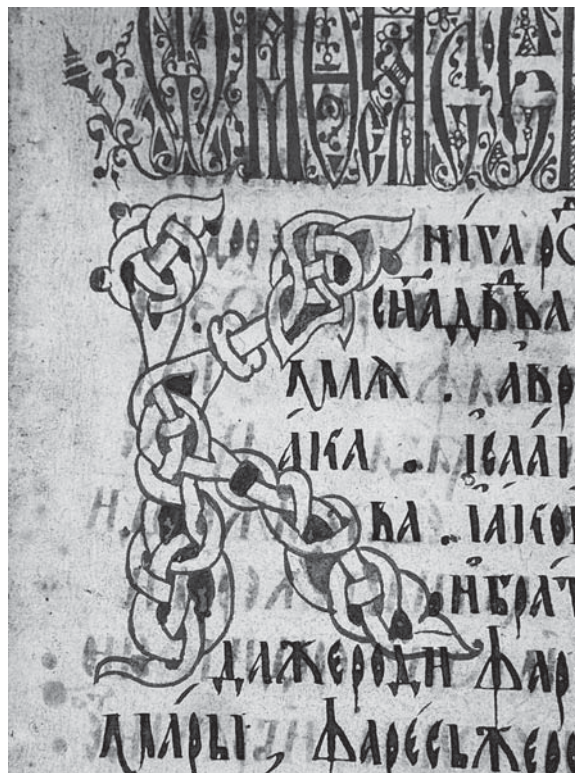 Кнїга ро
сн҃адв҃ва
амлѧ . авр
ака . їсаа
ва . їако
ибрат
дажероди фар
амары . фаресьжеро